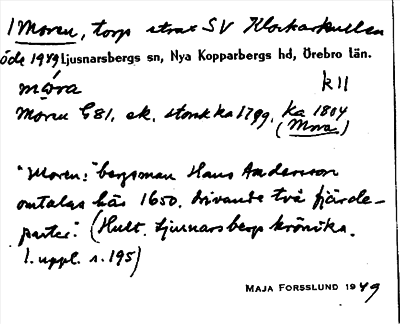 1 Moren, torp strax SV Klockarkullen
öde 1949 Ljusnarsbergs sn, Nya Kopparbergs hd, Örebro län.
mo̱ra k II
Moren G81, ek, storsk ka 1799, ka 1804
(Mora)
"Moren:" bergsman Hans Andersson
omtalas här 1650, drivande två fjärde-
parter." (Hult. Ljusnarsbergs krönika.
1. uppl. s. 195)
MAJA FORSSLUND 1949